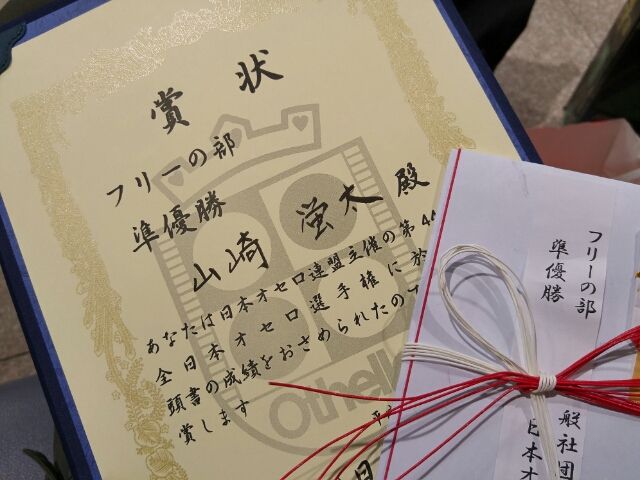 賞状
フリーの部
準優勝
山崎 蛍太 殿
あなたは日本オセロ連盟主催の第44
全日本オセロ選手権に於
頭書の成績をおさめられたので
賞します
Othello
フリーの部
準優勝
般社団
日本オ